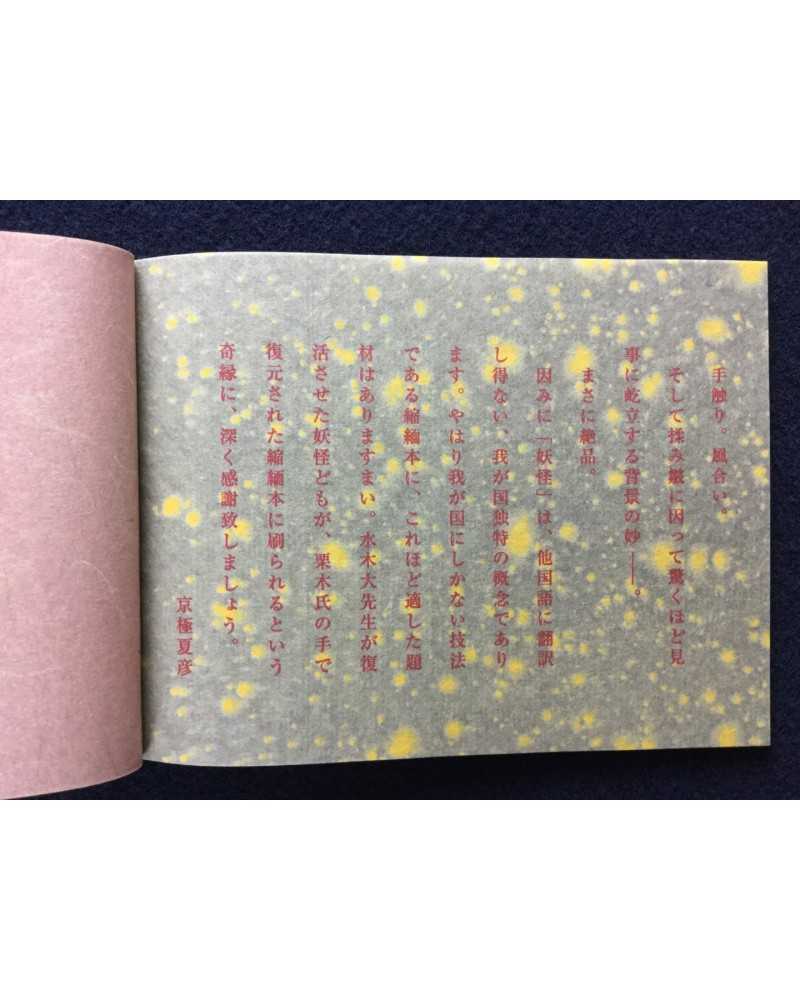 手触り。風合い。
そして揉み皺に因って驚くほど見
事に屹立する背景の妙――。
まさに絶品。
因みに「妖怪」は、他国語に翻訳
し得ない、我が国独特の概念であり
ます。やはり我が国にしかない技法
である縮緬本に、これほど適した題
材はありますまい。水木大先生が復
活させた妖怪どもが、栗木氏の手で
復元された縮緬本に刷られるという
奇縁に、深く感謝致しましょう。
京極夏彦